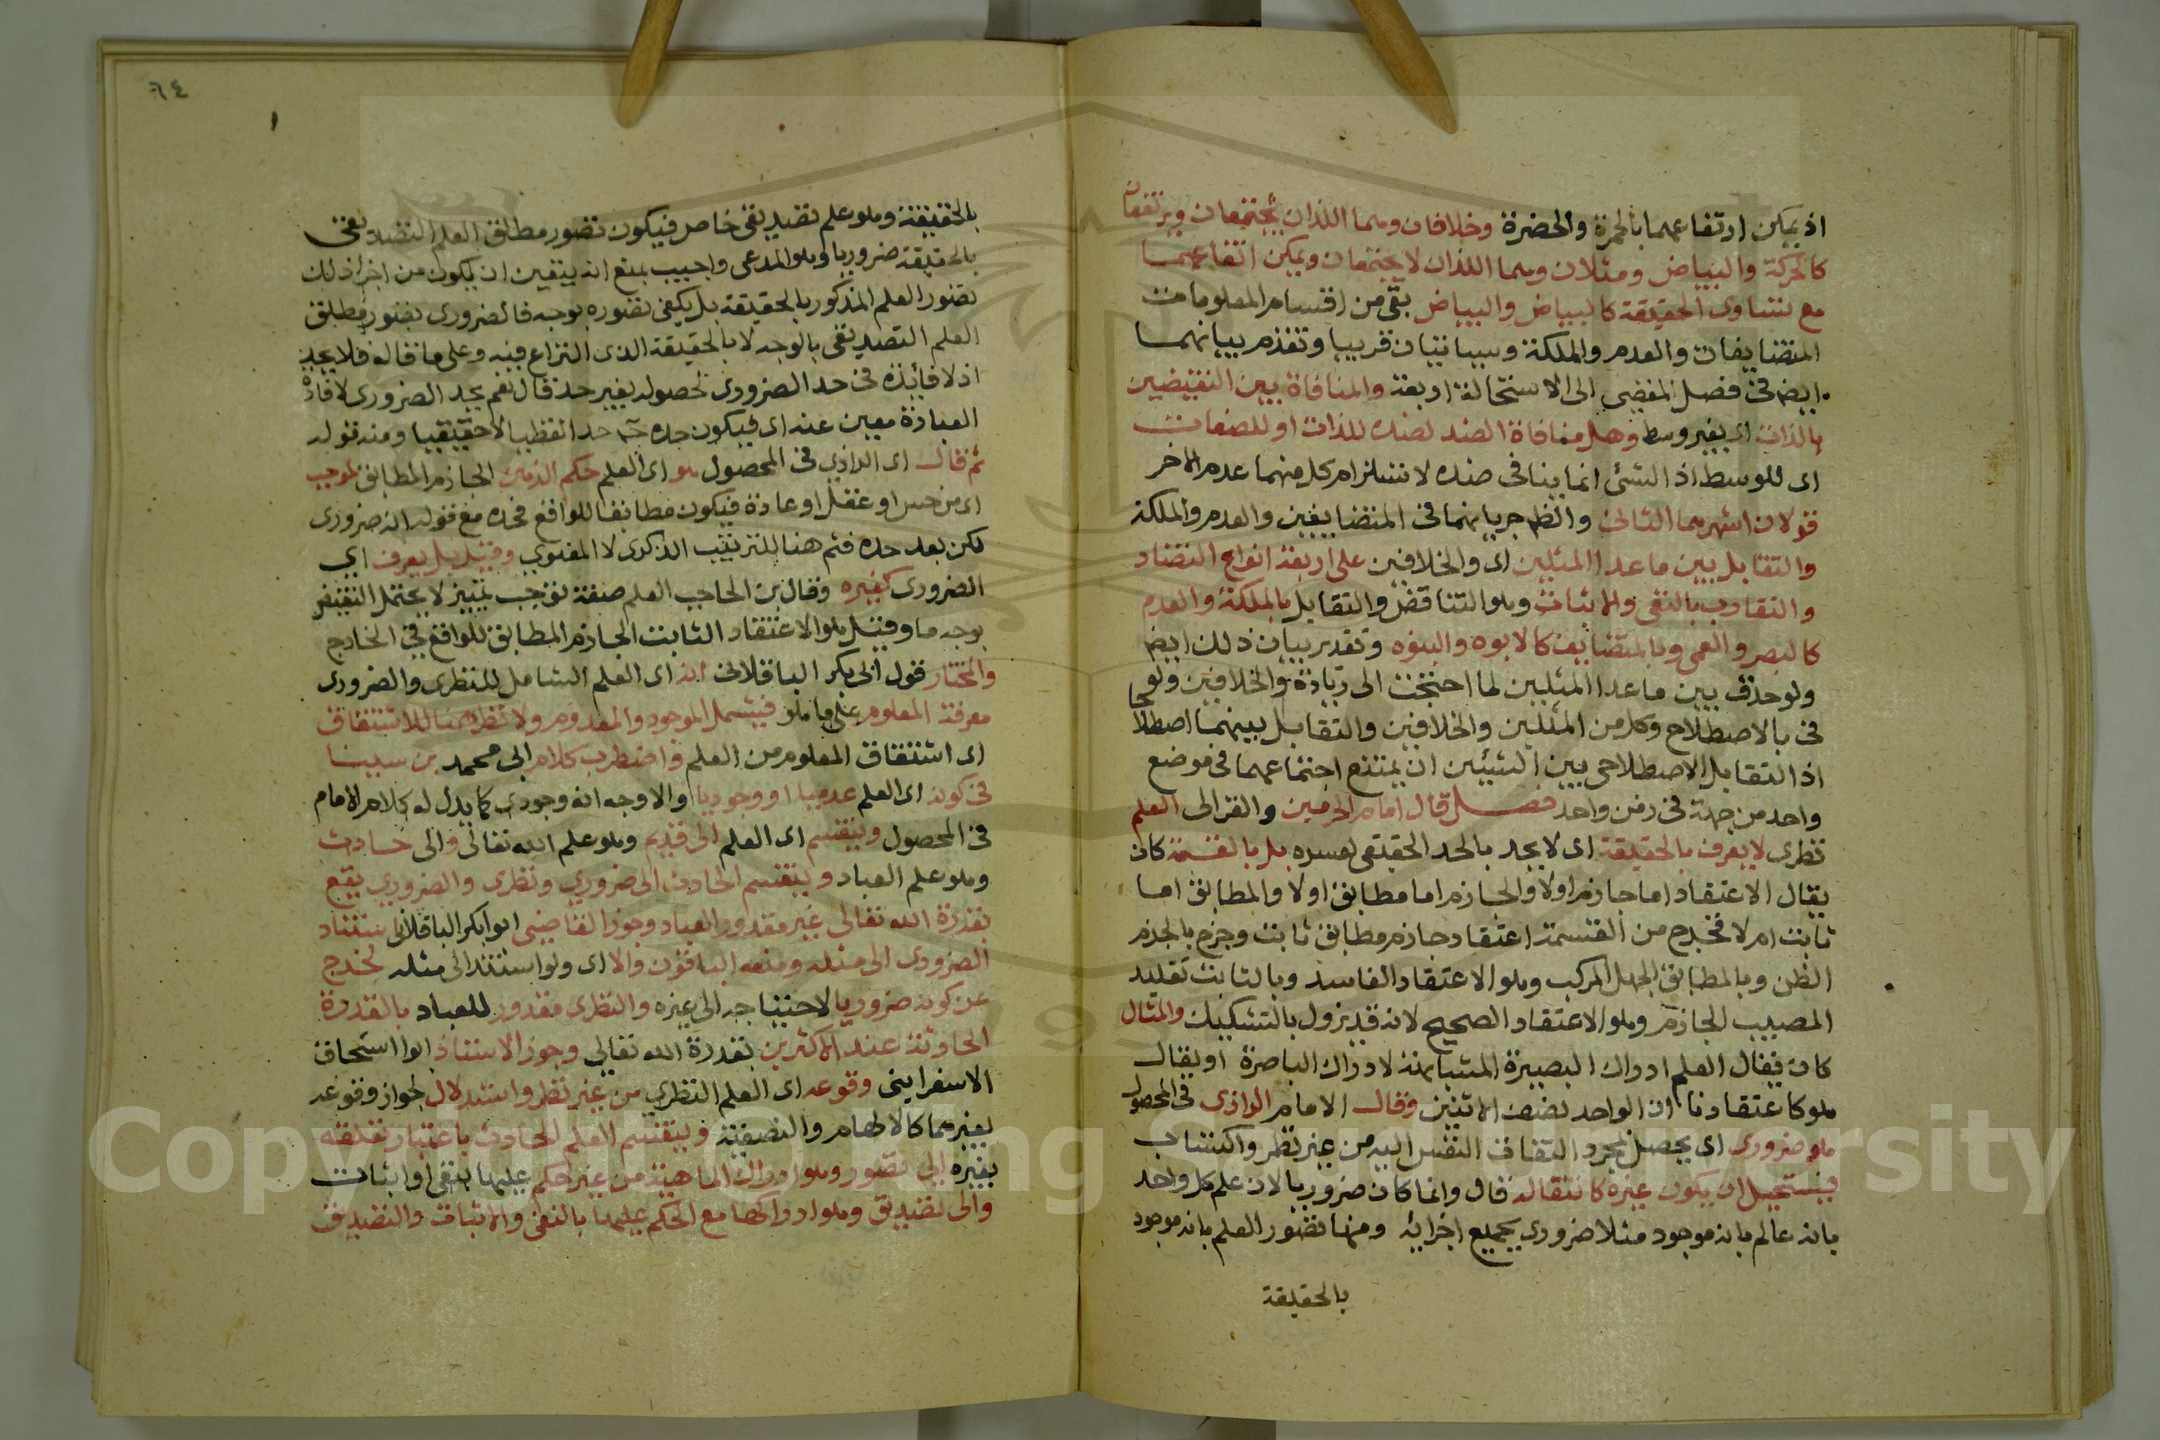 اذ يمكن ارتفاعهما بالحمرة والخضرة وخلافان وهما اللذان يجتمعان ويرتفعان
كالحركة والبياض ومثلان وهما اللذان لا يجتمعان ويمكن ارتفاعهما
مع تساوى الحقيقة كالبياض والبياض بقى من اقسام المعلومات
المتضايفان والعدم والملكة وسياتيان قريبا وتقدم بيانهما
ايضا فى فصل المفضى الى الاستحالة اربعة والمنافاة بين النقيضين
بالذات اى بغير وسط وهل منافاة الضد لضده للذات او للصفات
اى للوسط اذ الشئ انما ينافى ضده لاستلزام كل منهما عدم الاخر
قولان اشهرهما الثانى والظ جريانهما فى المتضايفين والعدم والملكة
والتقابل بين ما عدا المثلين اى والخلافين على اربعة انواع التضاد
والتقارب بالنفى والاثبات وهو التناقض والتقابل بالملكة والعدم
كالبصر والعمى وبالمتضايف كالابوه والبنوه وتقدير بيان ذلك ايض
ولو حذف بين ما عدا المثلين لما احتجت الى زيادة والخلافين ولو
فى بالاصطلاح وكل من المثلين والخلافين والتقابل بينهما اصطلاحا
اذ التقابل الاصطلاحى بين الشيئين ان يمتنع اجتماعهما فى موضع
واحد من جهة فى زمن واحد فصل قال امام الحرمين والغزالى العلم
نظرى لا يعرف بالحقيقة اى لا يحد بالحد الحقيقى لعسره بل بالقسمة كان
يقال الاعتقاد اما جازم اولا والجازم اما مطابق اولا والمطابق اما
ثابت ام لا فخرج من القسمة اعتقاد جازم مطابق ثابت وخرج بالجزم
الظن وبالمطابق الجهل المركب وهو الاعتقاد الفاسد وبالثابت تقليد
المصيب الجازم وهو الاعتقاد الصحيح لانه قد يزول بالتشكيك والمثال
كان يقال العلم ادراك البصيرة المشابهة لادراك الباصرة او يقال
هو كاعتقادنا ان الواحد نصف الاثنين وقال الامام الرازى فى المحصول
هو ضرورى اى يحصل بمجرد التفات النفس اليه من غير نظر واكتساب
فيستحيل ان يكون غيره كاشفا له قال وانما كان ضروريا لان علم كل واحد
بانه عالم بانه موجود مثلا ضرورى بجميع اجزائه ومنها تصور العلم بانه موجود
بالحقيقة
٦٤
بالحقيقة وهو علم تصديقى خاص فيكون تصور مطلق العلم التصديقى
بالحقيقة ضروريا وهو المدعى واجيب بمنع انه يتعين ان يكون من اجزا ذلك
تصور العلم المذكور بالحقيقة بل يكفى تصوره بوجه فالضرورى تصور مطلق
العلم التصديقى بالوجه لا بالحقيقة الذى النزاع فيه وعلى ما قاله فلا يحد
اذ لا فائدة فى حد الضرورى لحصوله بغير حد قال نعم يحد الضرورى لافادة
العبارة معين عنه اى فيكون حده ح حدا لفظيا لا حقيقيا ومنه قوله
ثم قال اى الرازى فى المحصول هو اى العلم حكم الذهن الجازم المطابق لموجب
اى من حس او عقل او عادة فيكون مطابقا للواقع فحده مع قوله انه ضرورى
لكن بعد حده فثم هنا للترتيب الذكرى لا المعنوى وقيل بل يعرف اى
الضرورى كغيره وقال بن الحاجب العلم صفة توجب تمييز لا يحتمل النقيض
بوجه ما وقيل هو الاعتقاد الثابت الجازم المطابق للواقع فى الخارج
والمختار قول ابى بكر الباقلانى انه اى العلم الشامل للنظرى والضرورى
معرفة المعلوم على ما هو فيشمل الموجود والمعدوم ولا نظر هنا للاشتقاق
اى اشتقاق المعلوم من العلم واضطرب كلام ابى محمد بن سينا
فى كونه اى العلم عدميا او وجوديا والاوجه انه وجودى كما يدل له كلام الامام
فى المحصول وينقسم اى العلم الى قديم وهو علم الله تعالى والى حادث
وهو علم العباد وينقسم الحادث الى ضرورى ونظرى والضرورى يقع
بقدرة الله تعالى غير مقدور العباد وجوز القاضى ابوا بكر الباقلانى استناد
الضرورى الى مثله ومنعه الباقون والا اى ولو استند الى مثله لخرج
عن كونه ضروريا لاحتياجه الى غيره والنظرى مقدور للعباد بالقدرة
الحادثة عند الاكثرين بقدرة الله تعالى وجوز الاستاذ ابوا اسحاق
الاسفراينى وقوعه اى العلم النظرى من غير نظر واستدلال لجواز وقوعه
بغيرهما كالالهام والتصفية وينقسم العلم الحادث باعتبار تعلقه
بغيره الى تصور وهو ادراك الماهية من غير حكم عليها بنفى او اثبات
والى تصديق وهو ادراكها مع الحكم عليها بالنفى والاثبات والتصديق
Copyright © King Saud University